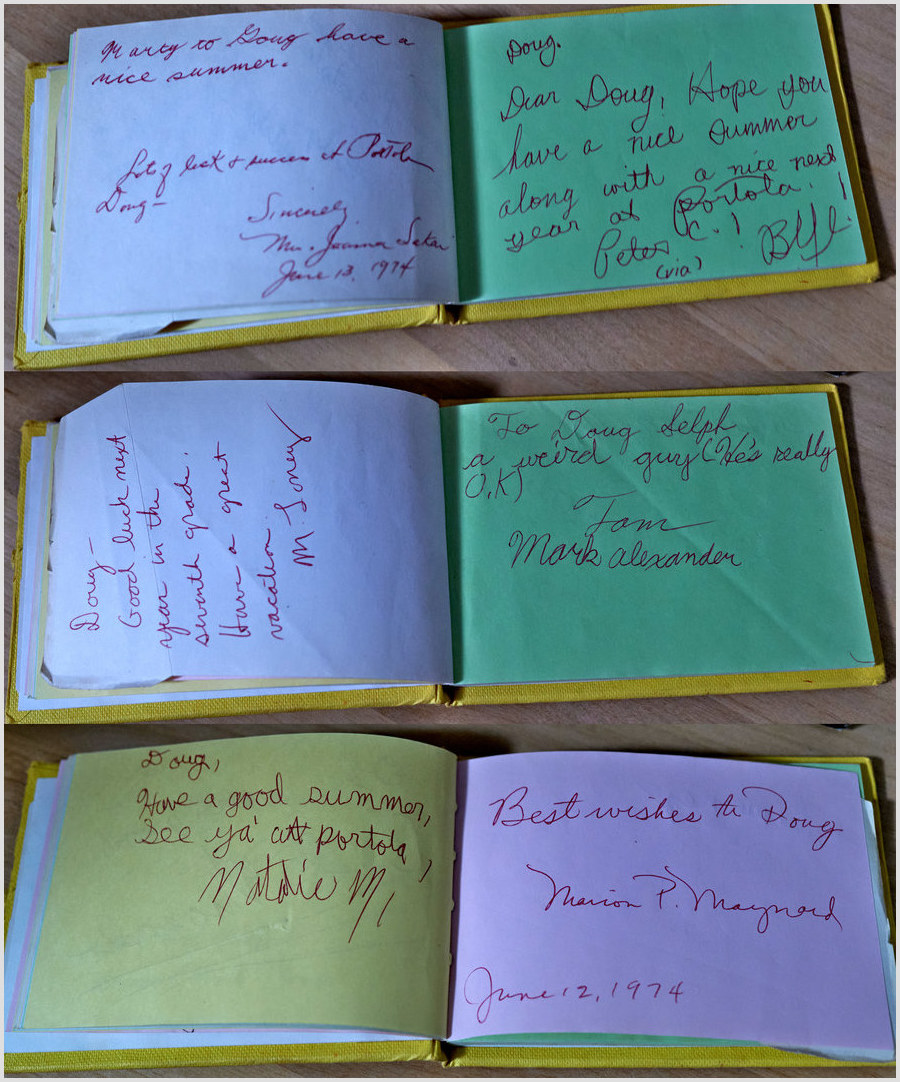 Marty to Doug have a
nice summer.
Lots of luck + success at Portola
Doug—
Sincerely
Mrs. Joanna
June 13, 1974
Doug.
Dear Doug, Hope you
have a nice summer
along with a nice next
year at Portola. !
Peter C. !
(via)
Doug—
Good luck next
year in the
seventh grade.
Have a great
vacation.
M.
To Doug Selph
a weird guy (He's really
O.K)
Tom
Mark alexander
Doug,
Have a good summer,
See ya' at portola,
Natalie M,
Best wishes to Doug
Marion P. Maynard
June 12, 1974